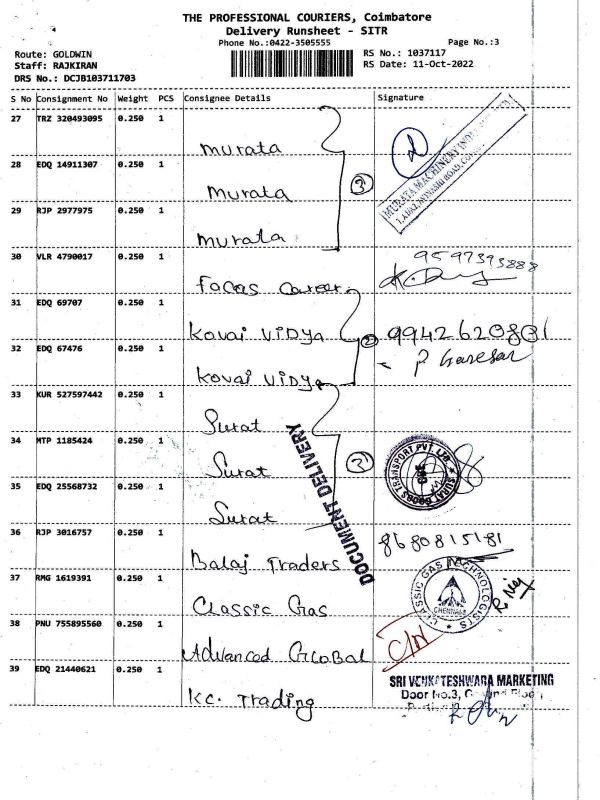 THE PROFESSIONAL COURIERS, Coimbatore
Delivery Runsheet - SITR
Phone No.:0422-3505555
Page No.:3
Route: GOLDWIN
RS No.: 1037117
Staff: RAJKIRAN
RS Date: 11-Oct-2022
DRS No.: DCJB103711703
S No Consignment No Weight PCS Consignee Details Signature
27 TRZ 320493095 0.250 1
Murata
28 EDQ 14911307 0.250 1
Murata
29 RJP 2977975 0.250 1
Murata
3
MURATA MACHINERY
30 VLR 4790017 0.250 1
9597393888
Focus Career
31 EDQ 69707 0.250 1
Kovai Vidya
2
9942620801
32 EDQ 67476 0.250 1
Kovai Vidya
33 KUR 527597442 0.250 1
Surat
34 MTP 1185424 0.250 1
Surat
3
SURAT GOODS TRANSPORT PVT LTD
35 EDQ 25568732 0.250 1
Surat
DOCUMENT DELIVERY
36 RJP 3016757 0.250 1
8680815181
Balaj Traders
37 RMG 1619391 0.250 1
Classic Gas
CLASSIC GAS TECHNOLOGISTS
CHENNAI
38 PNU 755895560 0.250 1
Advanced Global
39 EDQ 21440621 0.250 1
SRI VENKATESHWARA MARKETING
Door No.3,
KC. Trading